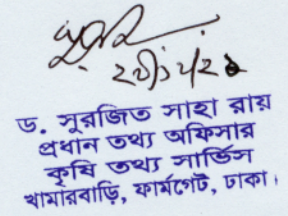 ড. সুরজিত সাহা রায়
প্রধান তথ্য অফিসার
কৃষি তথ্য সার্ভিস
খামারবাড়ি, ফার্মগেট, ঢাকা।